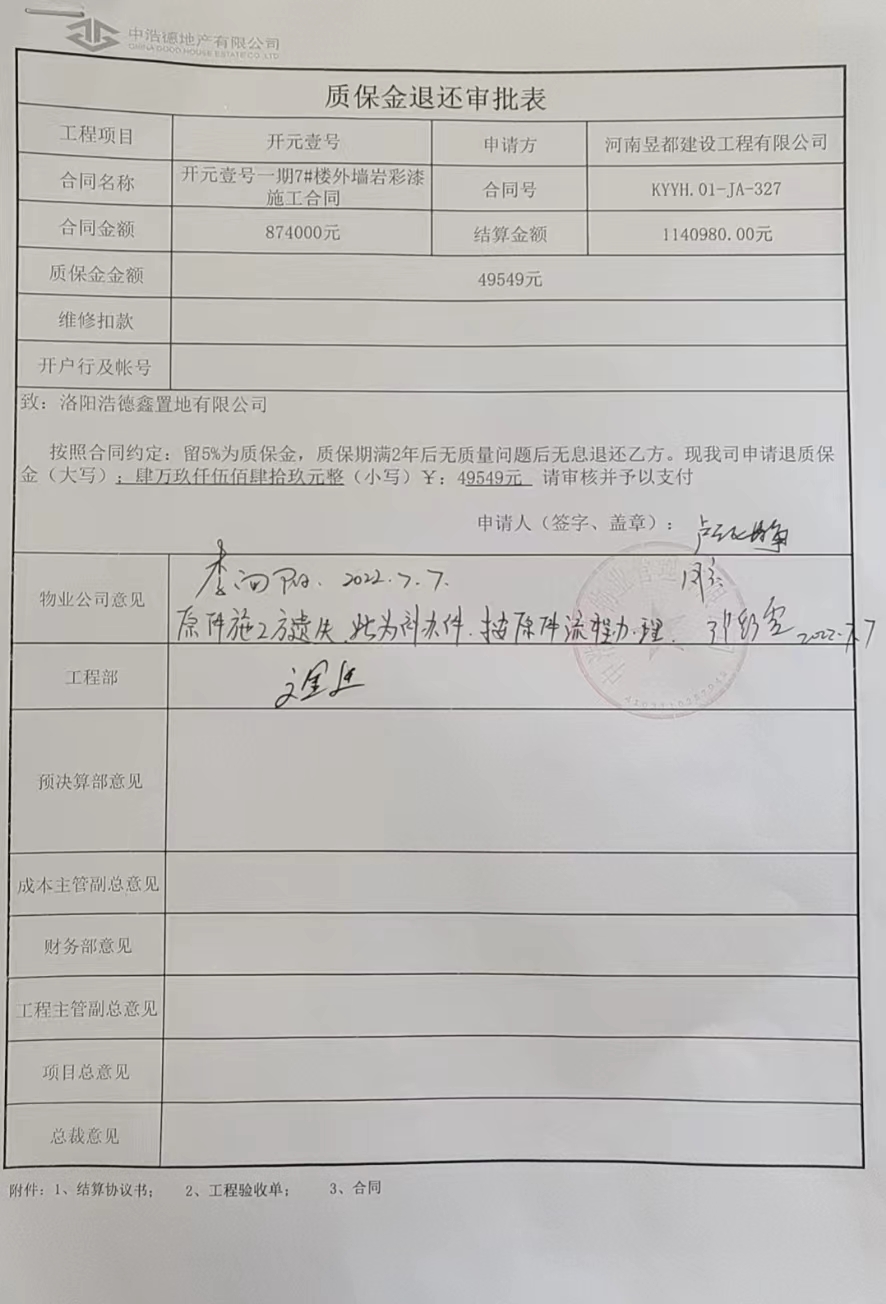 中浩德地产有限公司
CHINA GOOD HOUSE ESTATE CO.,LTD
质保金退还审批表
工程项目 开元壹号 申请方 河南昱都建设工程有限公司
合同名称 开元壹号一期7#楼外墙岩彩漆施工合同 合同号 KYYH.01-JA-327
合同金额 874000元 结算金额 1140980.00元
质保金金额 49549元
维修扣款
开户行及帐号
致：洛阳浩德鑫置地有限公司
按照合同约定：留5%为质保金，质保期满2年后无质量问题后无息退还乙方。现我司申请退质保
金（大写）：肆万玖仟伍佰肆拾玖元整（小写）¥：49549元 请审核并予以支付
申请人（签字、盖章）：
物业公司意见 2022.7.7.
原件施工方遗失，此为补办件，按原件流程办理， 2022.7.7
工程部
预决算部意见
成本主管副总意见
财务部意见
工程主管副总意见
项目总意见
总裁意见
附件：1、结算协议书； 2、工程验收单； 3、合同